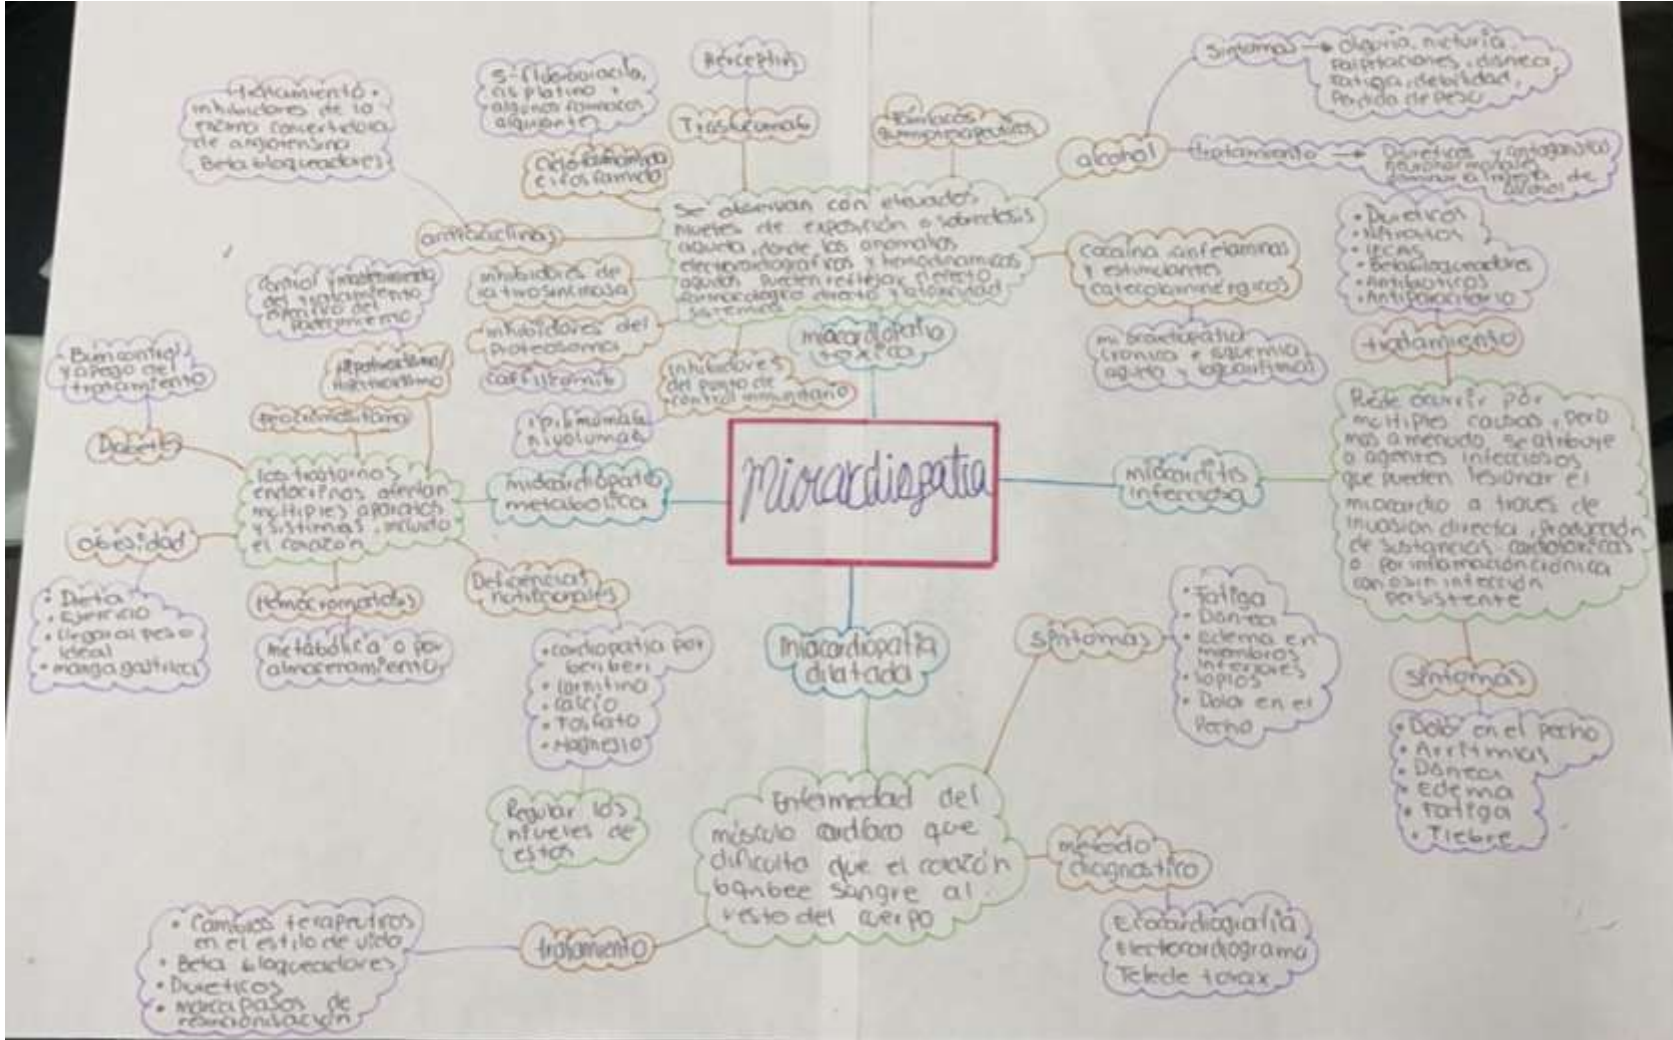 Miocardiopatia
miocardiopatia
toxica
Se observan con elevados
niveles de exposición o sobredosis
aguda, donde las anomalias
electrocardiograficas y hemodinamicas
agudas pueden reflejar el efecto
farmacologico directo y
sistemica
Herceptin
Trastuzumab
5-fluorouracilo,
cisplatino y
algunos farmacos
alquilantes
Ciclofosfamida
e ifosfamida
antraciclinas
tratamiento
inhibidores de la
enzima convertidora
de angiotensina
Beta bloqueadores
inhibidores de
la tirosincinasa
inhibidores del
proteosoma
carfilzomib
inhibidores
del punto de
control inmunitario
ipilimumab
nivolumab
Farmacos
quimioterapeuticos
alcohol
Sintomas → oliguria, nicturia,
palpitaciones, disnea,
fatiga, debilidad,
Perdida de peso
tratamiento → Diureticos y antagonistas
neurohormonales
disminuir la ingesta de
alcohol
cocaína, anfetaminas
y estimulantes
catecolaminérgicos
miocardiopatia
cronica e isquemia
aguda y
miocarditis
infecciosa
Puede ocurrir por
multiples causas, pero
mas a menudo, se atribuye
a agentes infecciosos
que pueden lesionar el
miocardio a traves de
invasion directa, Producción
de sustancias cardiotoxicas
o por inflamación crónica
con o sin infección
persistente
tratamiento
• Diureticos
• Nitratos
• IECAS
• Betabloqueadores
• Antibioticos
• Antiparasitario
síntomas
• Dolor en el pecho
• Arritmias
• Disnea
• Edema
• Fatiga
• Fiebre
miocardiopatia
metabolica
los trastornos
endocrinos afectan
multiples aparatos
y sistemas, incluido
el corazón
Diabetes
Buen control
y apego del
tratamiento
Control y mantenimiento
del tratamiento
del
padecimiento
obesidad
• Dieta
• Ejercicio
• Llegar al peso
ideal
• manga gastrica
Hemocromatosis
metabólica o por
almacenamiento
Deficiencias
nutricionales
• cardiopatia por
beriberi
• carnitina
• calcio
• Fosfato
• Magnesio
Regular los
niveles de
estos
miocardiopatia
dilatada
Enfermedad del
músculo cardíaco que
dificulta que el corazón
bombee sangre al
resto del cuerpo
síntomas
• Fatiga
• Disnea
• edema en
miembros
inferiores
• Dolor en el
Pecho
método
diagnostico
Ecocardiografía
Electrocardiograma
Tele de torax
tratamiento
• Cambios terapeuticos
en el estilo de vida
• Beta bloqueadores
• Diureticos
• marcapasos de